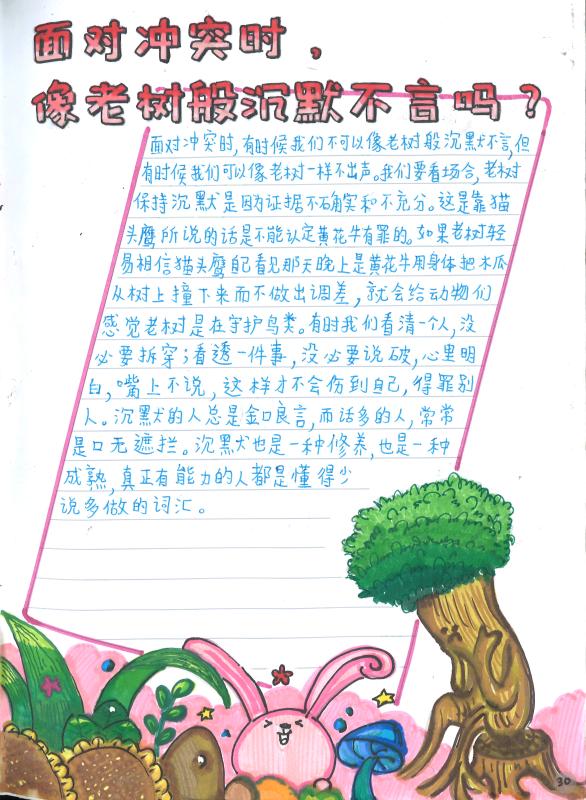 面对冲突时，
像老树般沉默不言吗？
面对冲突时,有时候我们不可以像老树般沉默不言,但
有时候我们可以像老树一样不出声。我们要看场合,老树
保持沉默是因为证据不确实和不充分。这是靠猫
头鹰所说的话是不能认定黄花牛有罪的。如果老树轻
易相信猫头鹰自己看见那天晚上是黄花牛用身体把木瓜
从树上撞下来而不做出调差，就会给动物们
感觉老树是在守护鸟类。有时我们看清一个人,没
必要拆穿;看透一件事,没必要说破,心里明
白,嘴上不说,这样才不会伤到自己,得罪别
人。沉默的人总是金口良言,而话多的人,常常
是口无遮拦。沉默也是一种修养,也是一种
成熟,真正有能力的人都是懂得少
说多做的词汇。
30